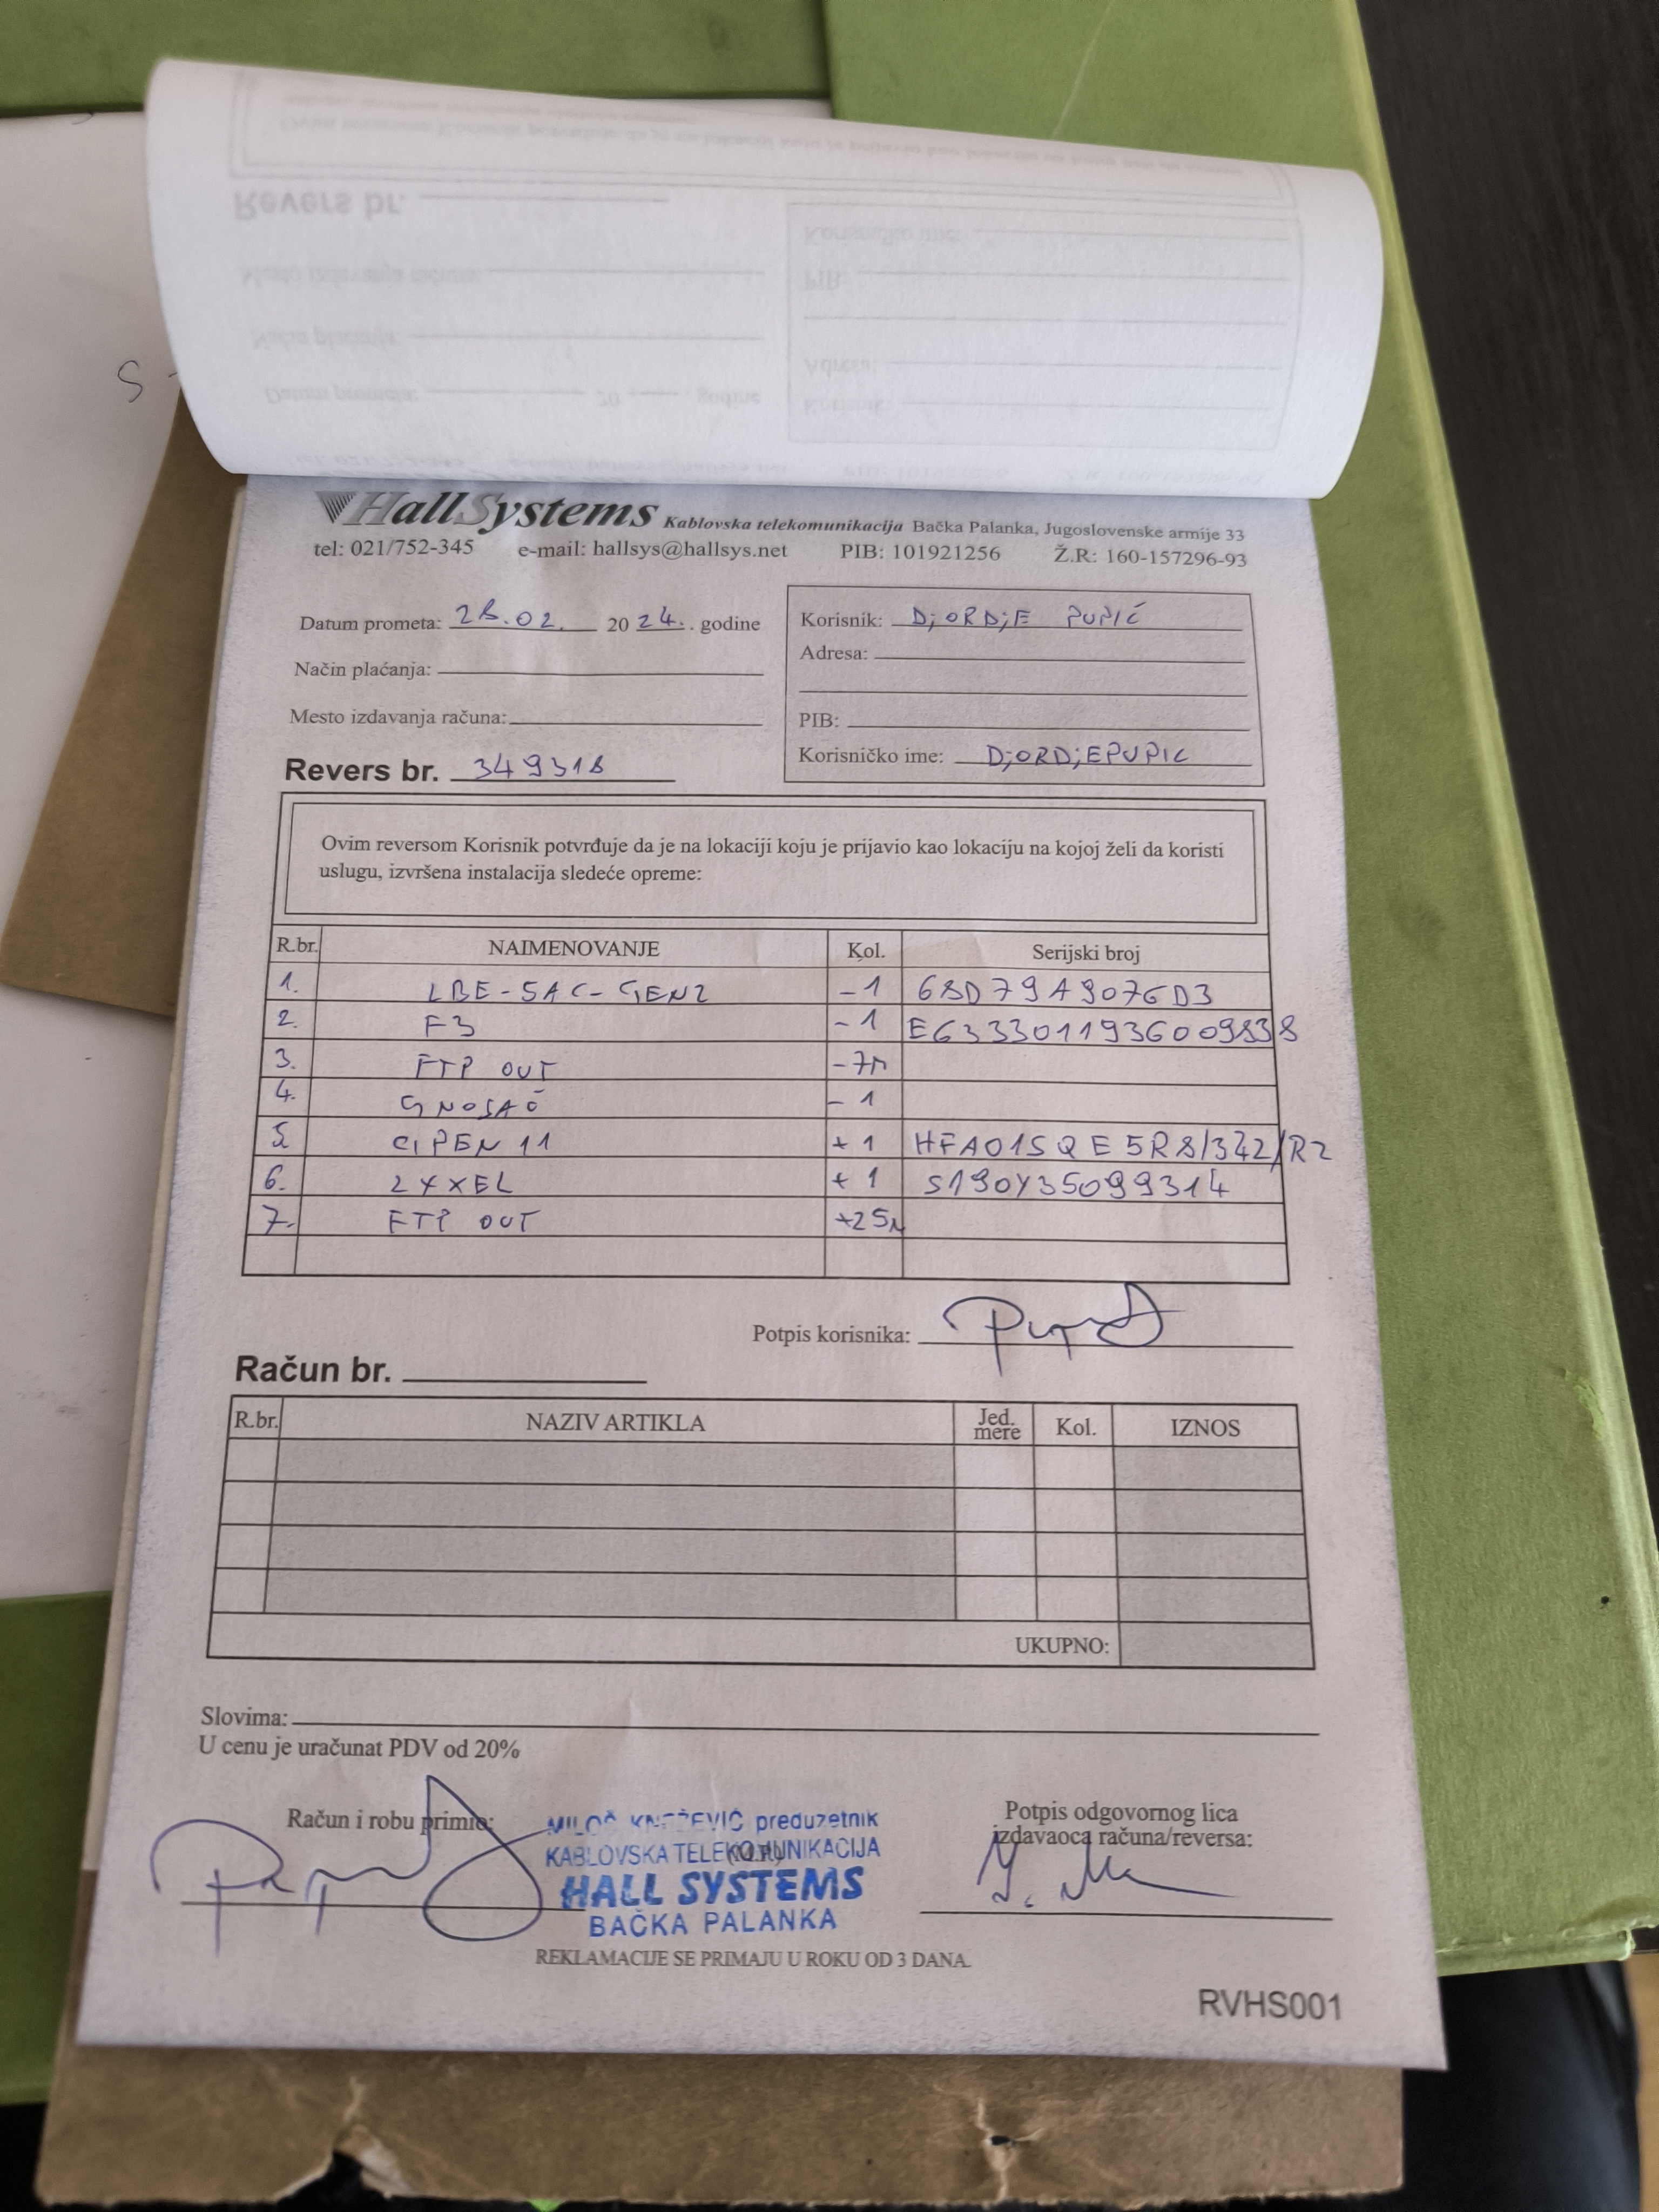 HallSystems Kablovska telekomunikacija Bačka Palanka, Jugoslovenske armije 33
tel: 021/752-345 e-mail: hallsys@hallsys.net PIB: 101921256 Ž.R: 160-157296-93
Datum prometa: 28.02. 2024. godine
Način plaćanja:
Mesto izdavanja računa:
Revers br. 349318
Korisnik: DjORDjE PUPIĆ
Adresa:
PIB:
Korisničko ime: DjORDjEPUPIC
Ovim reversom Korisnik potvrđuje da je na lokaciji koju je prijavio kao lokaciju na kojoj želi da koristi
uslugu, izvršena instalacija sledeće opreme:
R.br. NAIMENOVANJE Kol. Serijski broj
1. LBE-5AC-GEN2 -1 68D79A9076D3
2. F3 -1
3. FTP OUT -7m
4. GNOSAČ -1
5. CIPEN 11 +1
6. ZYXEL +1 S190Y35099314
7. FTP OUT +25m
Potpis korisnika:
Račun br.
R.br. NAZIV ARTIKLA Jed. mere Kol. IZNOS
UKUPNO:
Slovima:
U cenu je uračunat PDV od 20%
Račun i robu primio:
MILOŠ KNEŽEVIĆ preduzetnik
KABLOVSKA TELEKOMUNIKACIJA
HALL SYSTEMS
BAČKA PALANKA
Potpis odgovornog lica
izdavaoca računa/reversa:
REKLAMACIJE SE PRIMAJU U ROKU OD 3 DANA.
RVHS001